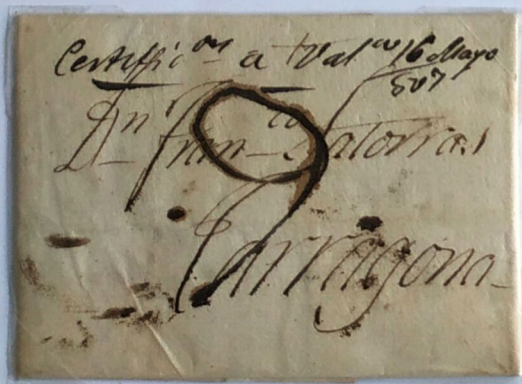 Certific.on a Val.a 16 Mayo
807
Dn Fran.co Satorras
9
Tarragona